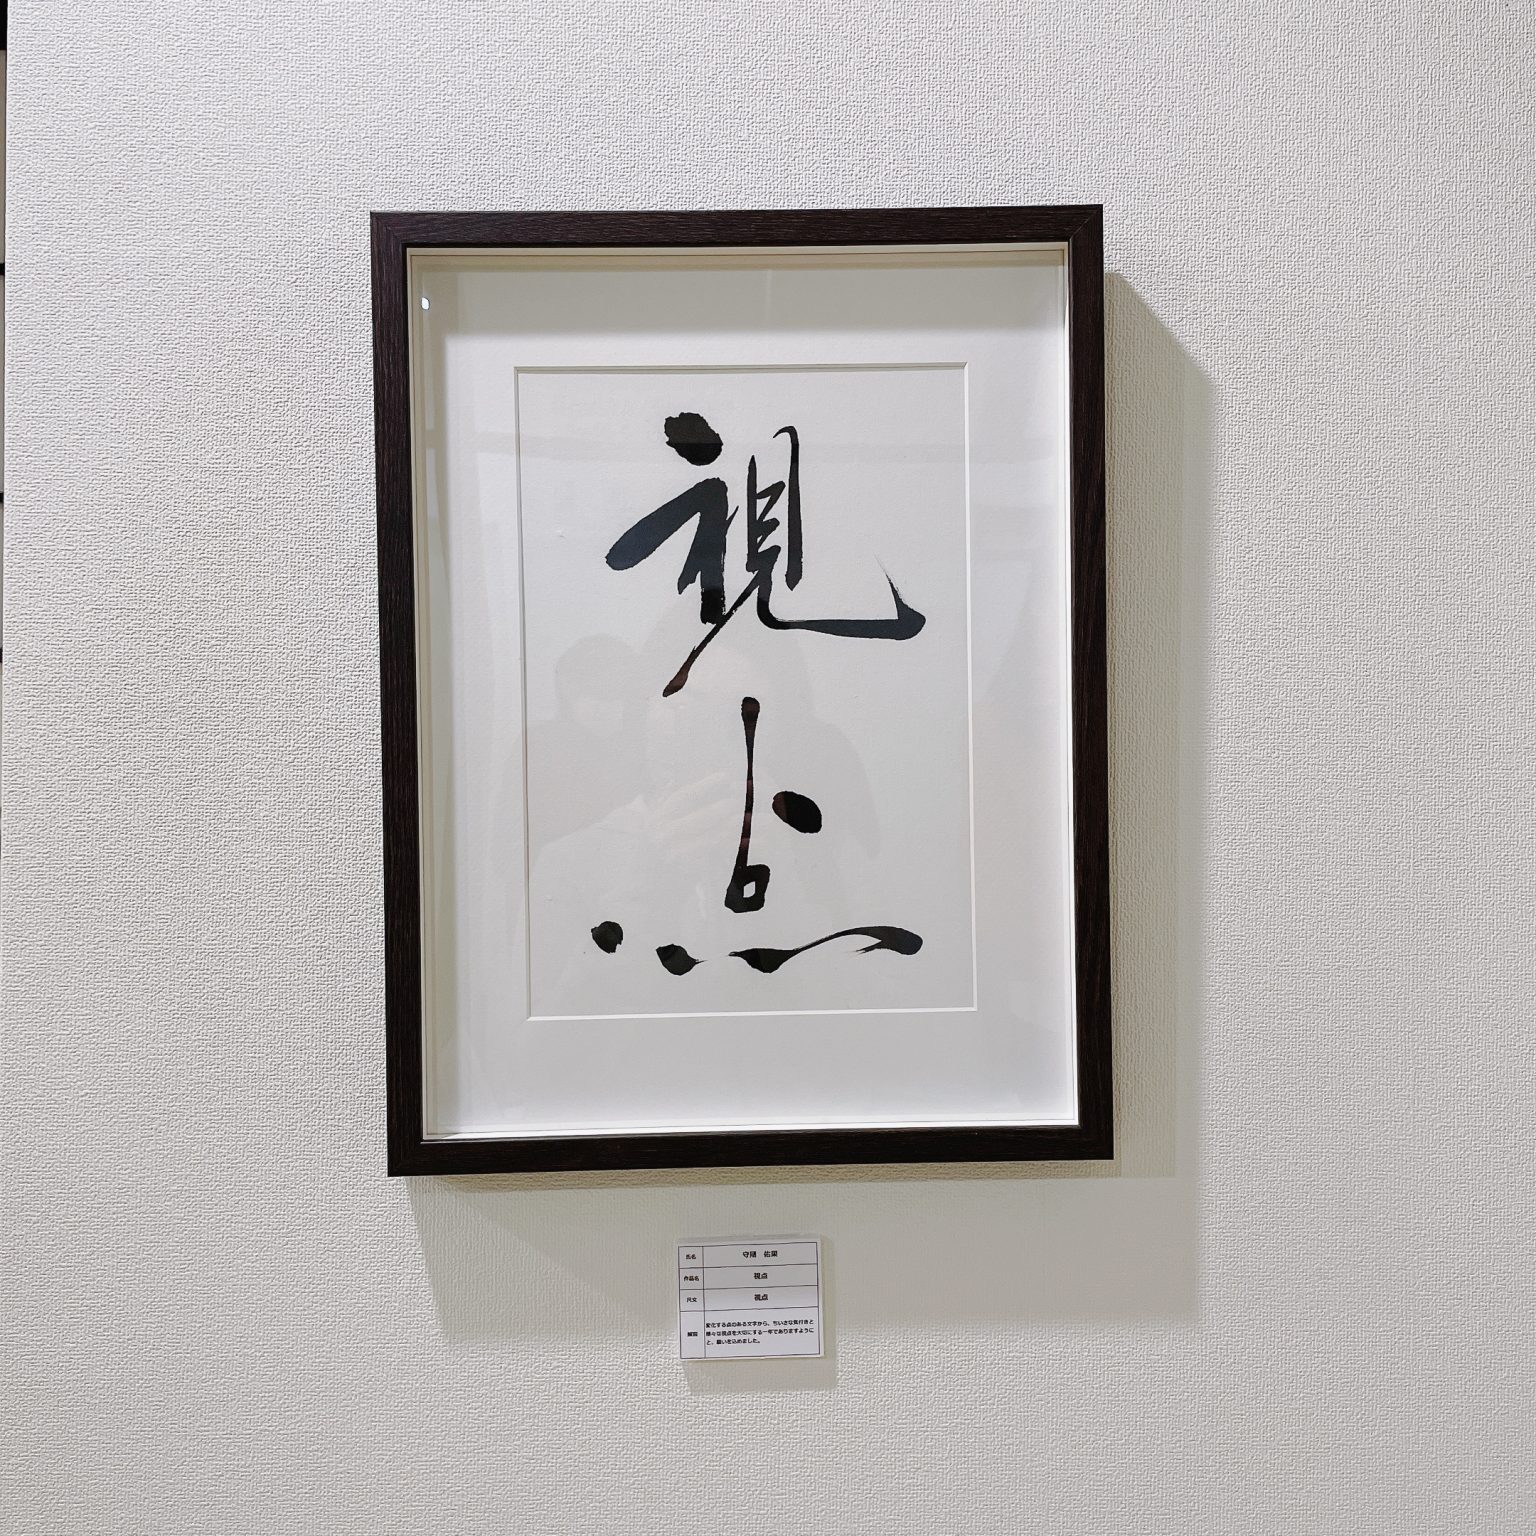 視
点
氏名
作品名 視点
釈文 視点
解説 変化する点のある文字から、ちいさな気付きと
様々な視点を大切にする一年でありますように
と、願いを込めました。